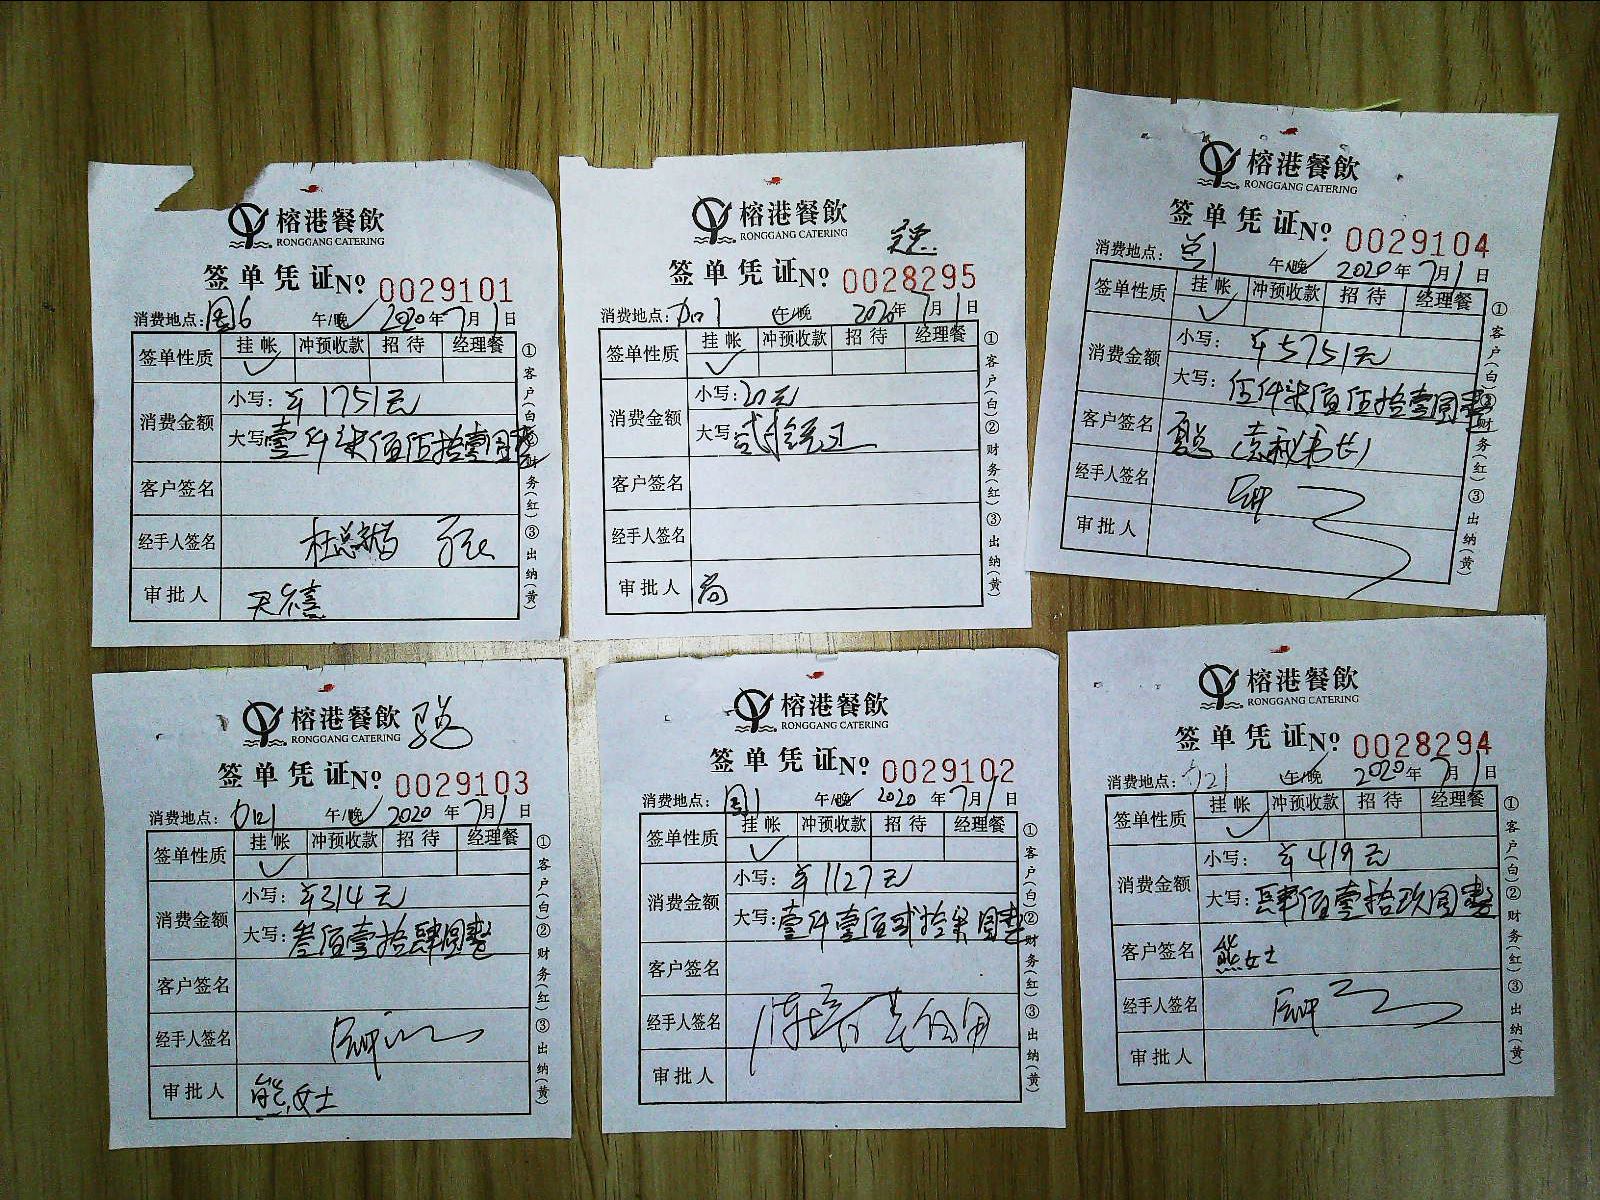 榕港餐飲
RONGGANG CATERING
签单凭证 No 0029101
消费地点: 午/晚 2020年7月1日
签单性质 挂帐 冲预收款 招待 经理餐
消费金额
小写: ¥1751元
大写 壹仟柒佰伍拾壹圆整
客户签名
经手人签名
审批人
①客户(白)②财务(红)③出纳(黄)
榕港餐飲
RONGGANG CATERING
签单凭证 No 0028295
消费地点: 午/晚 2020年7月1日
签单性质 挂帐 冲预收款 招待 经理餐
消费金额
小写: 20元
大写
客户签名
经手人签名
审批人
①客户(白)②财务(红)③出纳(黄)
榕港餐飲
RONGGANG CATERING
签单凭证 No 0029104
消费地点: 午/晚 2020年7月1日
签单性质 挂帐 冲预收款 招待 经理餐
消费金额
小写: ¥5751元
大写: 伍仟柒佰伍拾壹圆整
客户签名
经手人签名
审批人
①客户(白)②财务(红)③出纳(黄)
榕港餐飲
RONGGANG CATERING
签单凭证 No 0029103
消费地点: 午/晚 2020年7月1日
签单性质 挂帐 冲预收款 招待 经理餐
消费金额
小写: ¥314元
大写: 叁佰壹拾肆圆整
客户签名
经手人签名
审批人 熊女士
①客户(白)②财务(红)③出纳(黄)
榕港餐飲
RONGGANG CATERING
签单凭证 No 0029102
消费地点: 午/晚 2020年7月1日
签单性质 挂帐 冲预收款 招待 经理餐
消费金额
小写: ¥1127元
大写: 壹仟壹佰贰拾柒圆整
客户签名
经手人签名
审批人
①客户(白)②财务(红)③出纳(黄)
榕港餐飲
RONGGANG CATERING
签单凭证 No 0028294
消费地点: 午/晚 2020年7月1日
签单性质 挂帐 冲预收款 招待 经理餐
消费金额
小写: ¥419元
大写: 肆佰壹拾玖圆整
客户签名 熊女士
经手人签名
审批人
①客户(白)②财务(红)③出纳(黄)